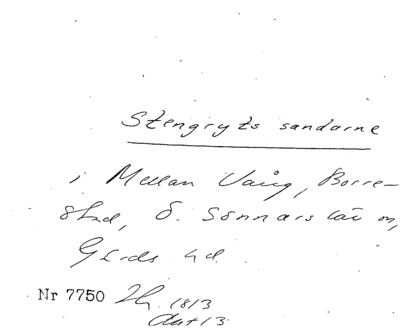 Stengryts sandarne
i Mellan Vång, Borre-
stad, Ö. Sönnarslöv sn,
Gärds hd.
Nr 7750 1813